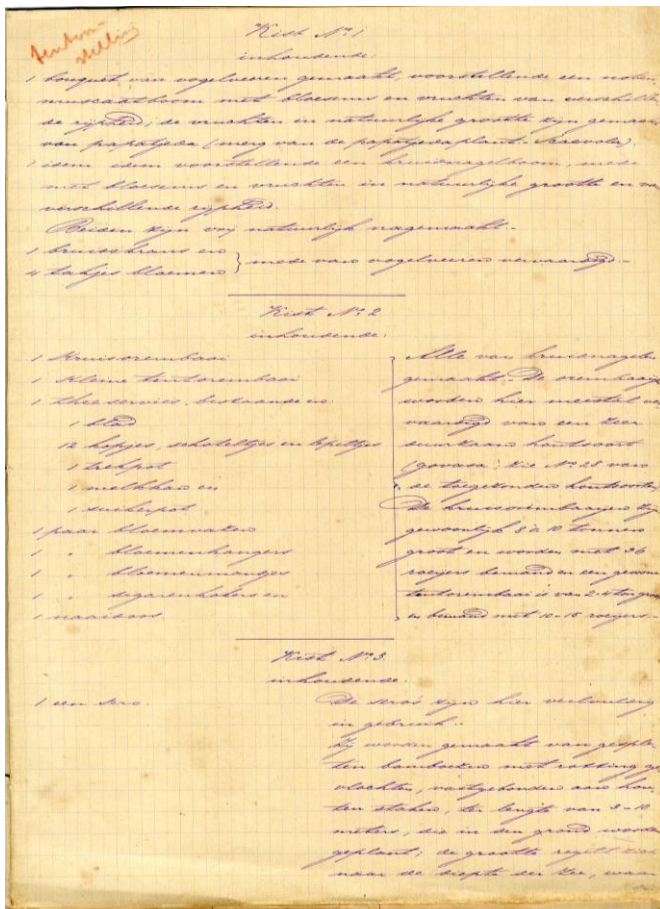 Kist No. 1
inhoudende:
1 bouquet van vogelveeren gemaakt, voorstellende een noten
muscaatboom met bloesems en vruchten van verschillen
de rijpheid; de vruchten in natuurlijke grootte zijn gemaakt
van papatjeda (merg van de papatjedaplant-Scaevola).
1 idem idem voorstellende een kruidnagelboom, mede
met bloesems en vruchten in natuurlijke grootte en van
verschillende rijpheid.
Beiden zijn vrij natuurlijk nagemaakt.-
1 bruidskrans en
4 takjes bloemen } mede van vogelveeren vervaardigd.-
Kist No. 2
inhoudende:
1 Kruisorembaai
1 kleine tentorembaai
1 theeservies, bestaande in:
1 blad
12 kopjes, schoteltjes en lepeltjes
1 trekpot
1 melkkan en
1 suikerpot
1 paar bloemvazen
1 " bloemenhangers
1 " bloemenmandjes
1 " sigarenkokers en
1 naaidoos.
Alle van kruidnagelen
gemaakt. De orembaaijen
worden hier meestal ver
vaardigd van een zeer
duurzaam houtsoort
(govasa; zie No. 28 van
de toegezonden houtsoorten)
De kruisorembaaijen zijn
gewoonlijk 8 à 10 tonnen
groot en worden met 36
roeijers bemand en een gewone
tentorembaai is van 2-4 ton groot
en bemand met 10-15 roeijers.-
Kist No. 3.
inhoudende.
1 een sero.
De sero's zijn hier veelvuldig
in gebruik.-
Zij worden gemaakt van gesple-
ten bamboezen met rotting ge
vlochten, vastgebonden aan hou-
ten staken, ter lengte van 3-10
meters, die in den grond worden
geplant; de grootte regelt zich
naar de diepte der zee, waar